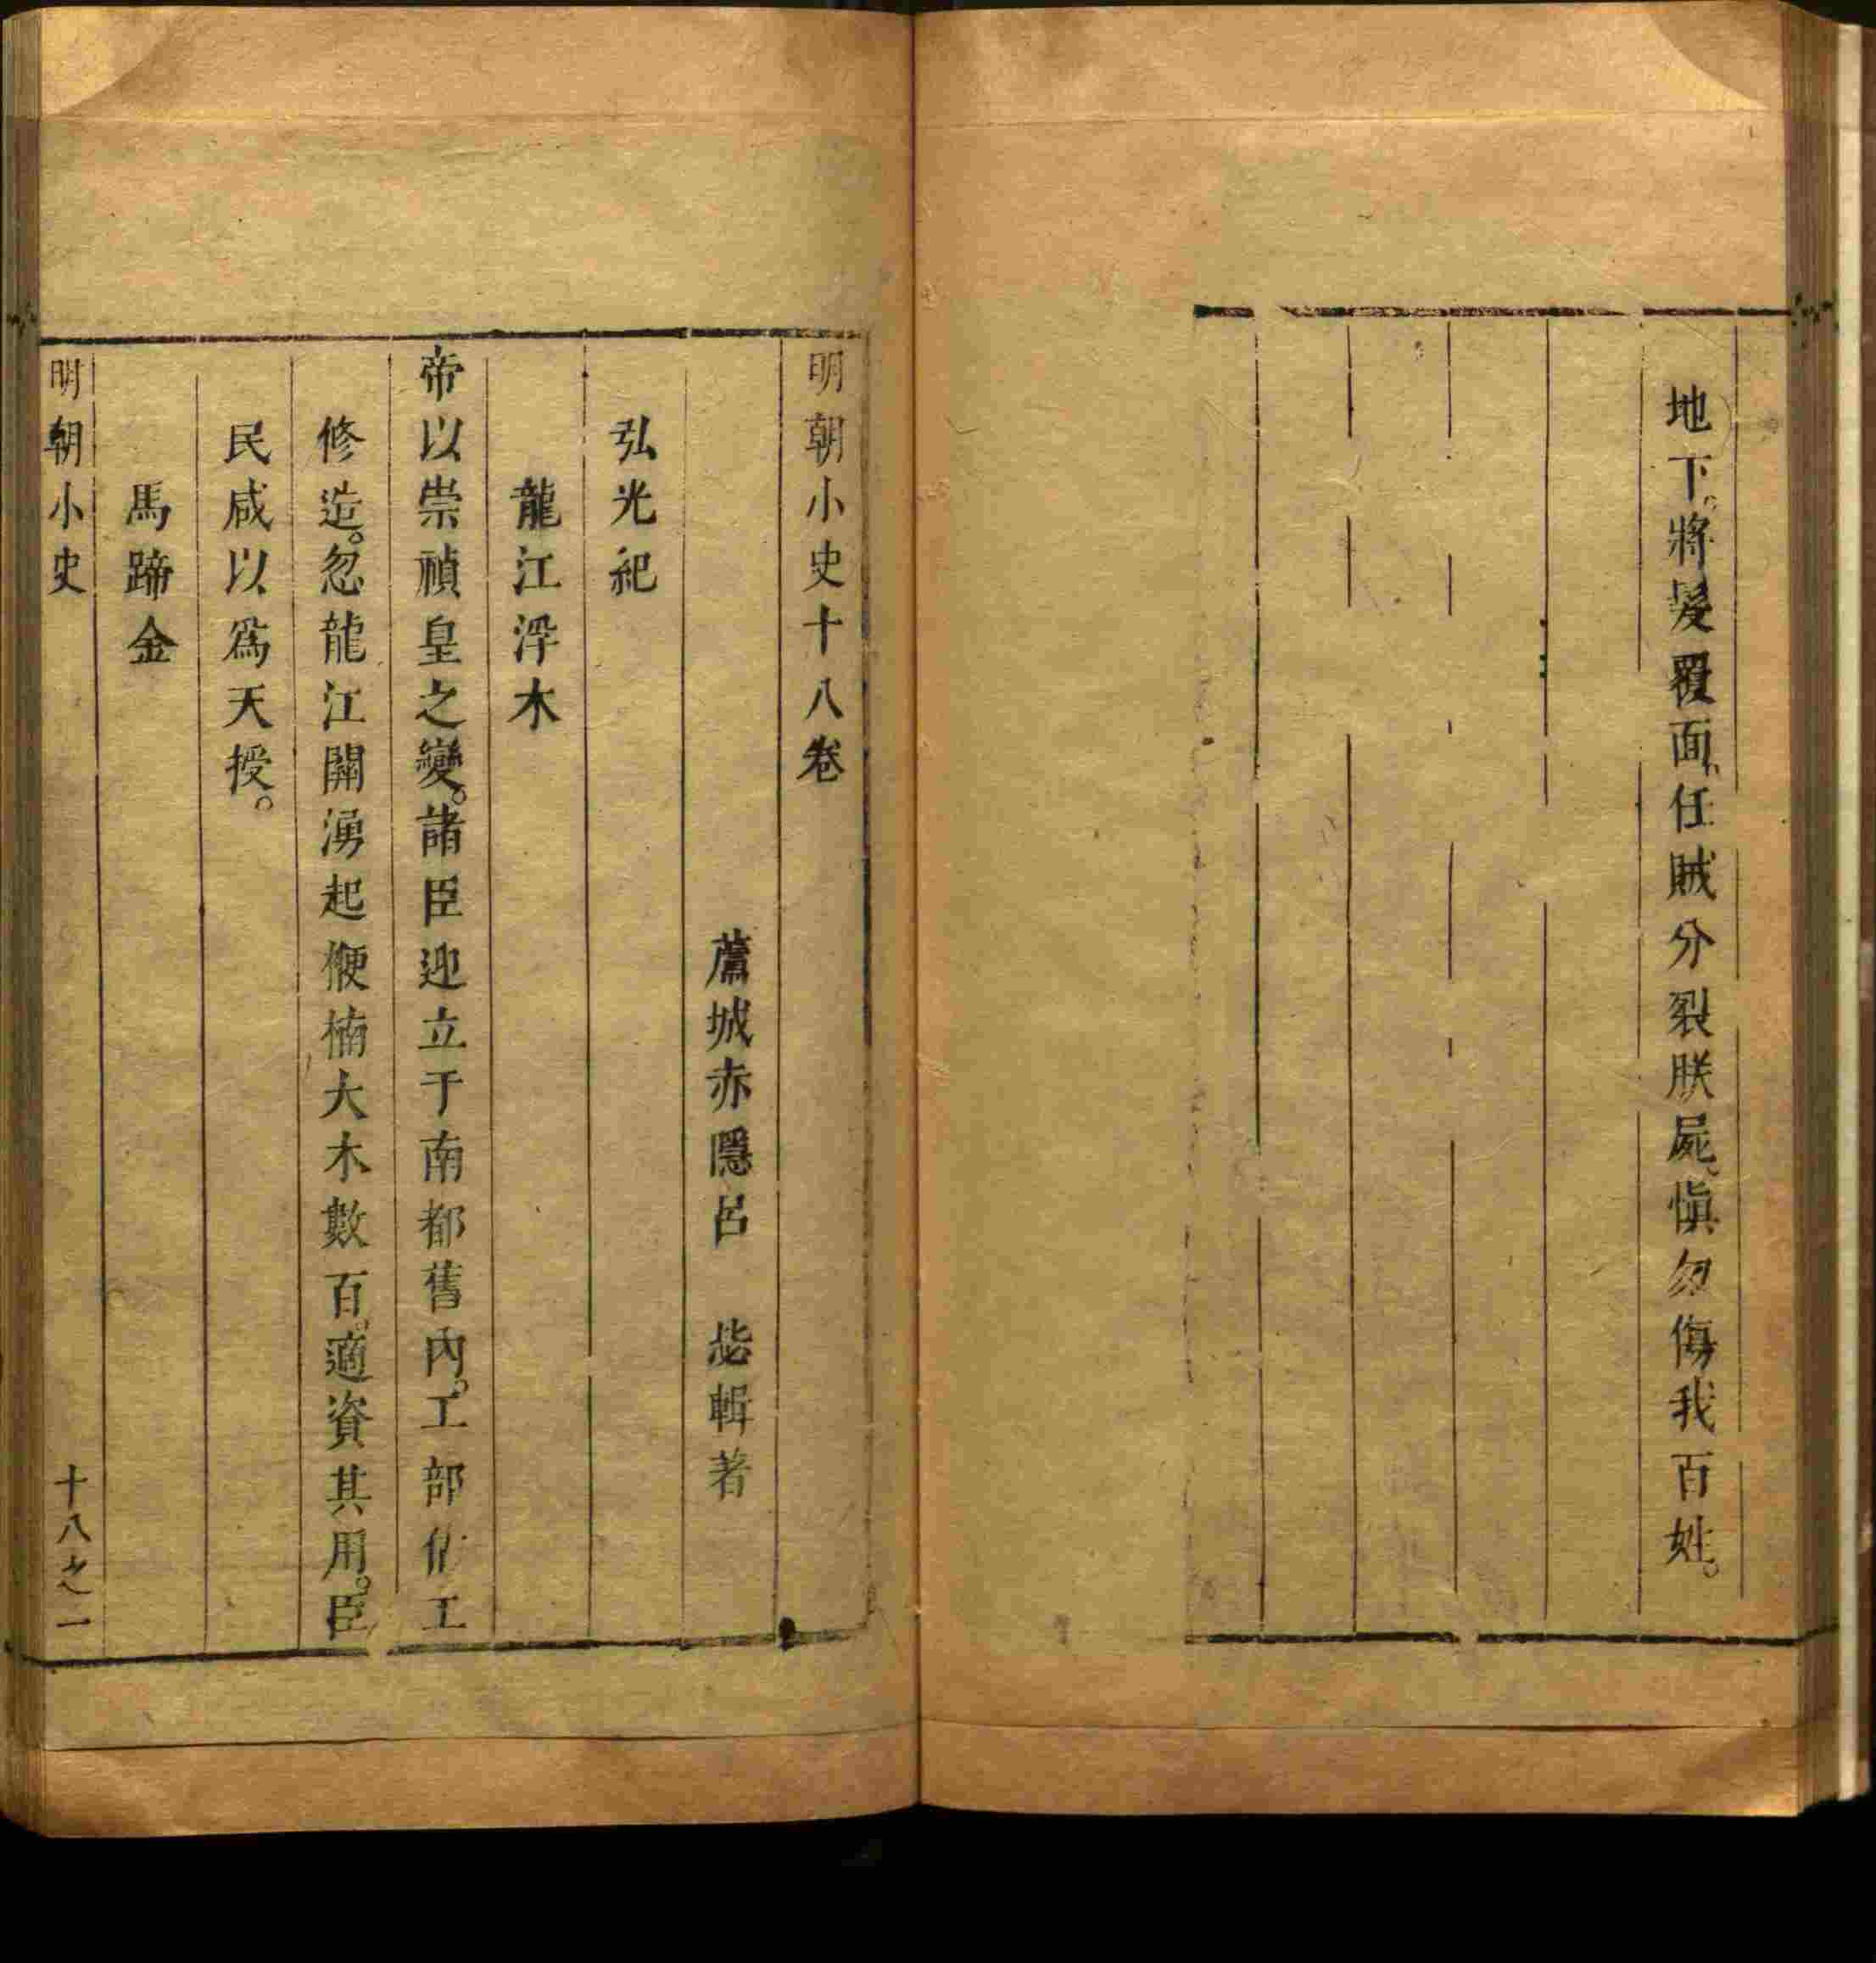 地下。將髮覆面、任賊分裂朕屍、愼勿傷我百姓。
明朝小史十八卷
蘆城赤隱呂　毖輯著
弘光紀
龍江浮木
帝以崇禎皇之變。諸臣迎立于南都舊內。工部估工
修造。忽龍江關湧起楩楠大木數百。適資其用。臣
民咸以爲天授。
馬蹄金
明朝小史　十八之一